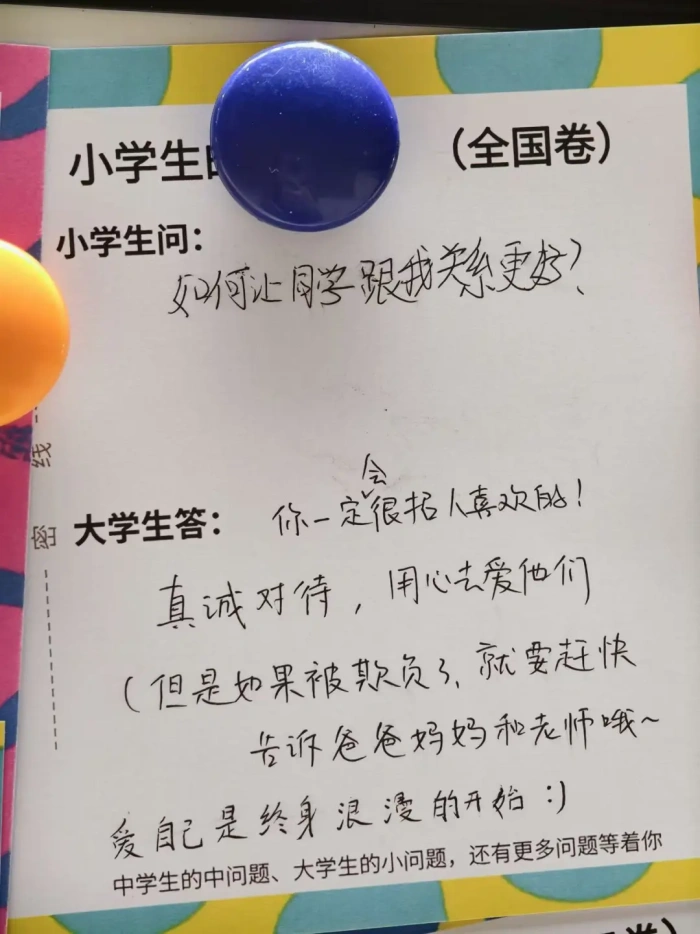 小学生的（全国卷）
小学生问：
如何让同学跟我关系更好？
大学生答：
你一定会很招人喜欢的！
真诚对待，用心去爱他们
（但是如果被欺负了、就要赶快
告诉爸爸妈妈和老师哦~
爱自己是终身浪漫的开始 :)
中学生的中问题、大学生的小问题，还有更多问题等着你
密 线